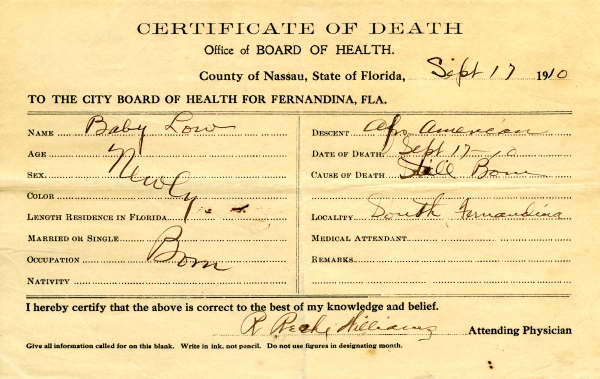 CERTIFICATE OF DEATH
Office of BOARD OF HEALTH.
County of Nassau, State of Florida, Sept 17 1910
TO THE CITY BOARD OF HEALTH FOR FERNANDINA, FLA.
NAME Baby Low
AGE
SEX Newly
COLOR
LENGTH RESIDENCE IN FLORIDA
MARRIED OR SINGLE
OCCUPATION Born
NATIVITY
DESCENT Afro American
DATE OF DEATH Sept 17-10
CAUSE OF DEATH Still Born
LOCALITY South Fernandina
MEDICAL ATTENDANT
REMARKS
I hereby certify that the above is correct to the best of my knowledge and belief.
Williams Attending Physician
Give all information called for on this blank. Write in ink, not pencil. Do not use figures in designating month.